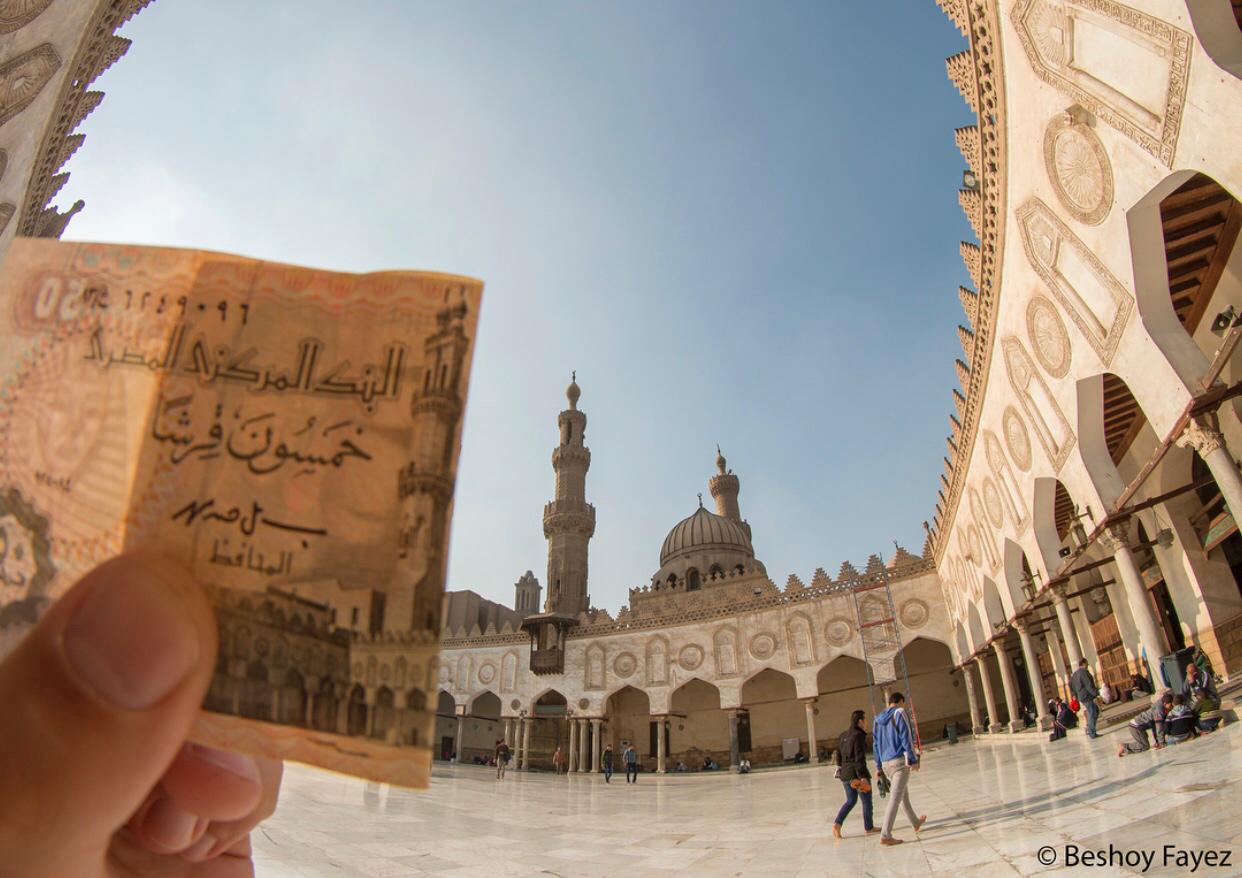 ٦٢٤٩٠٩٦
البنك المركزى المصرى
خمسُونَ قِرشًا
المحافظ
© Beshoy Fayez